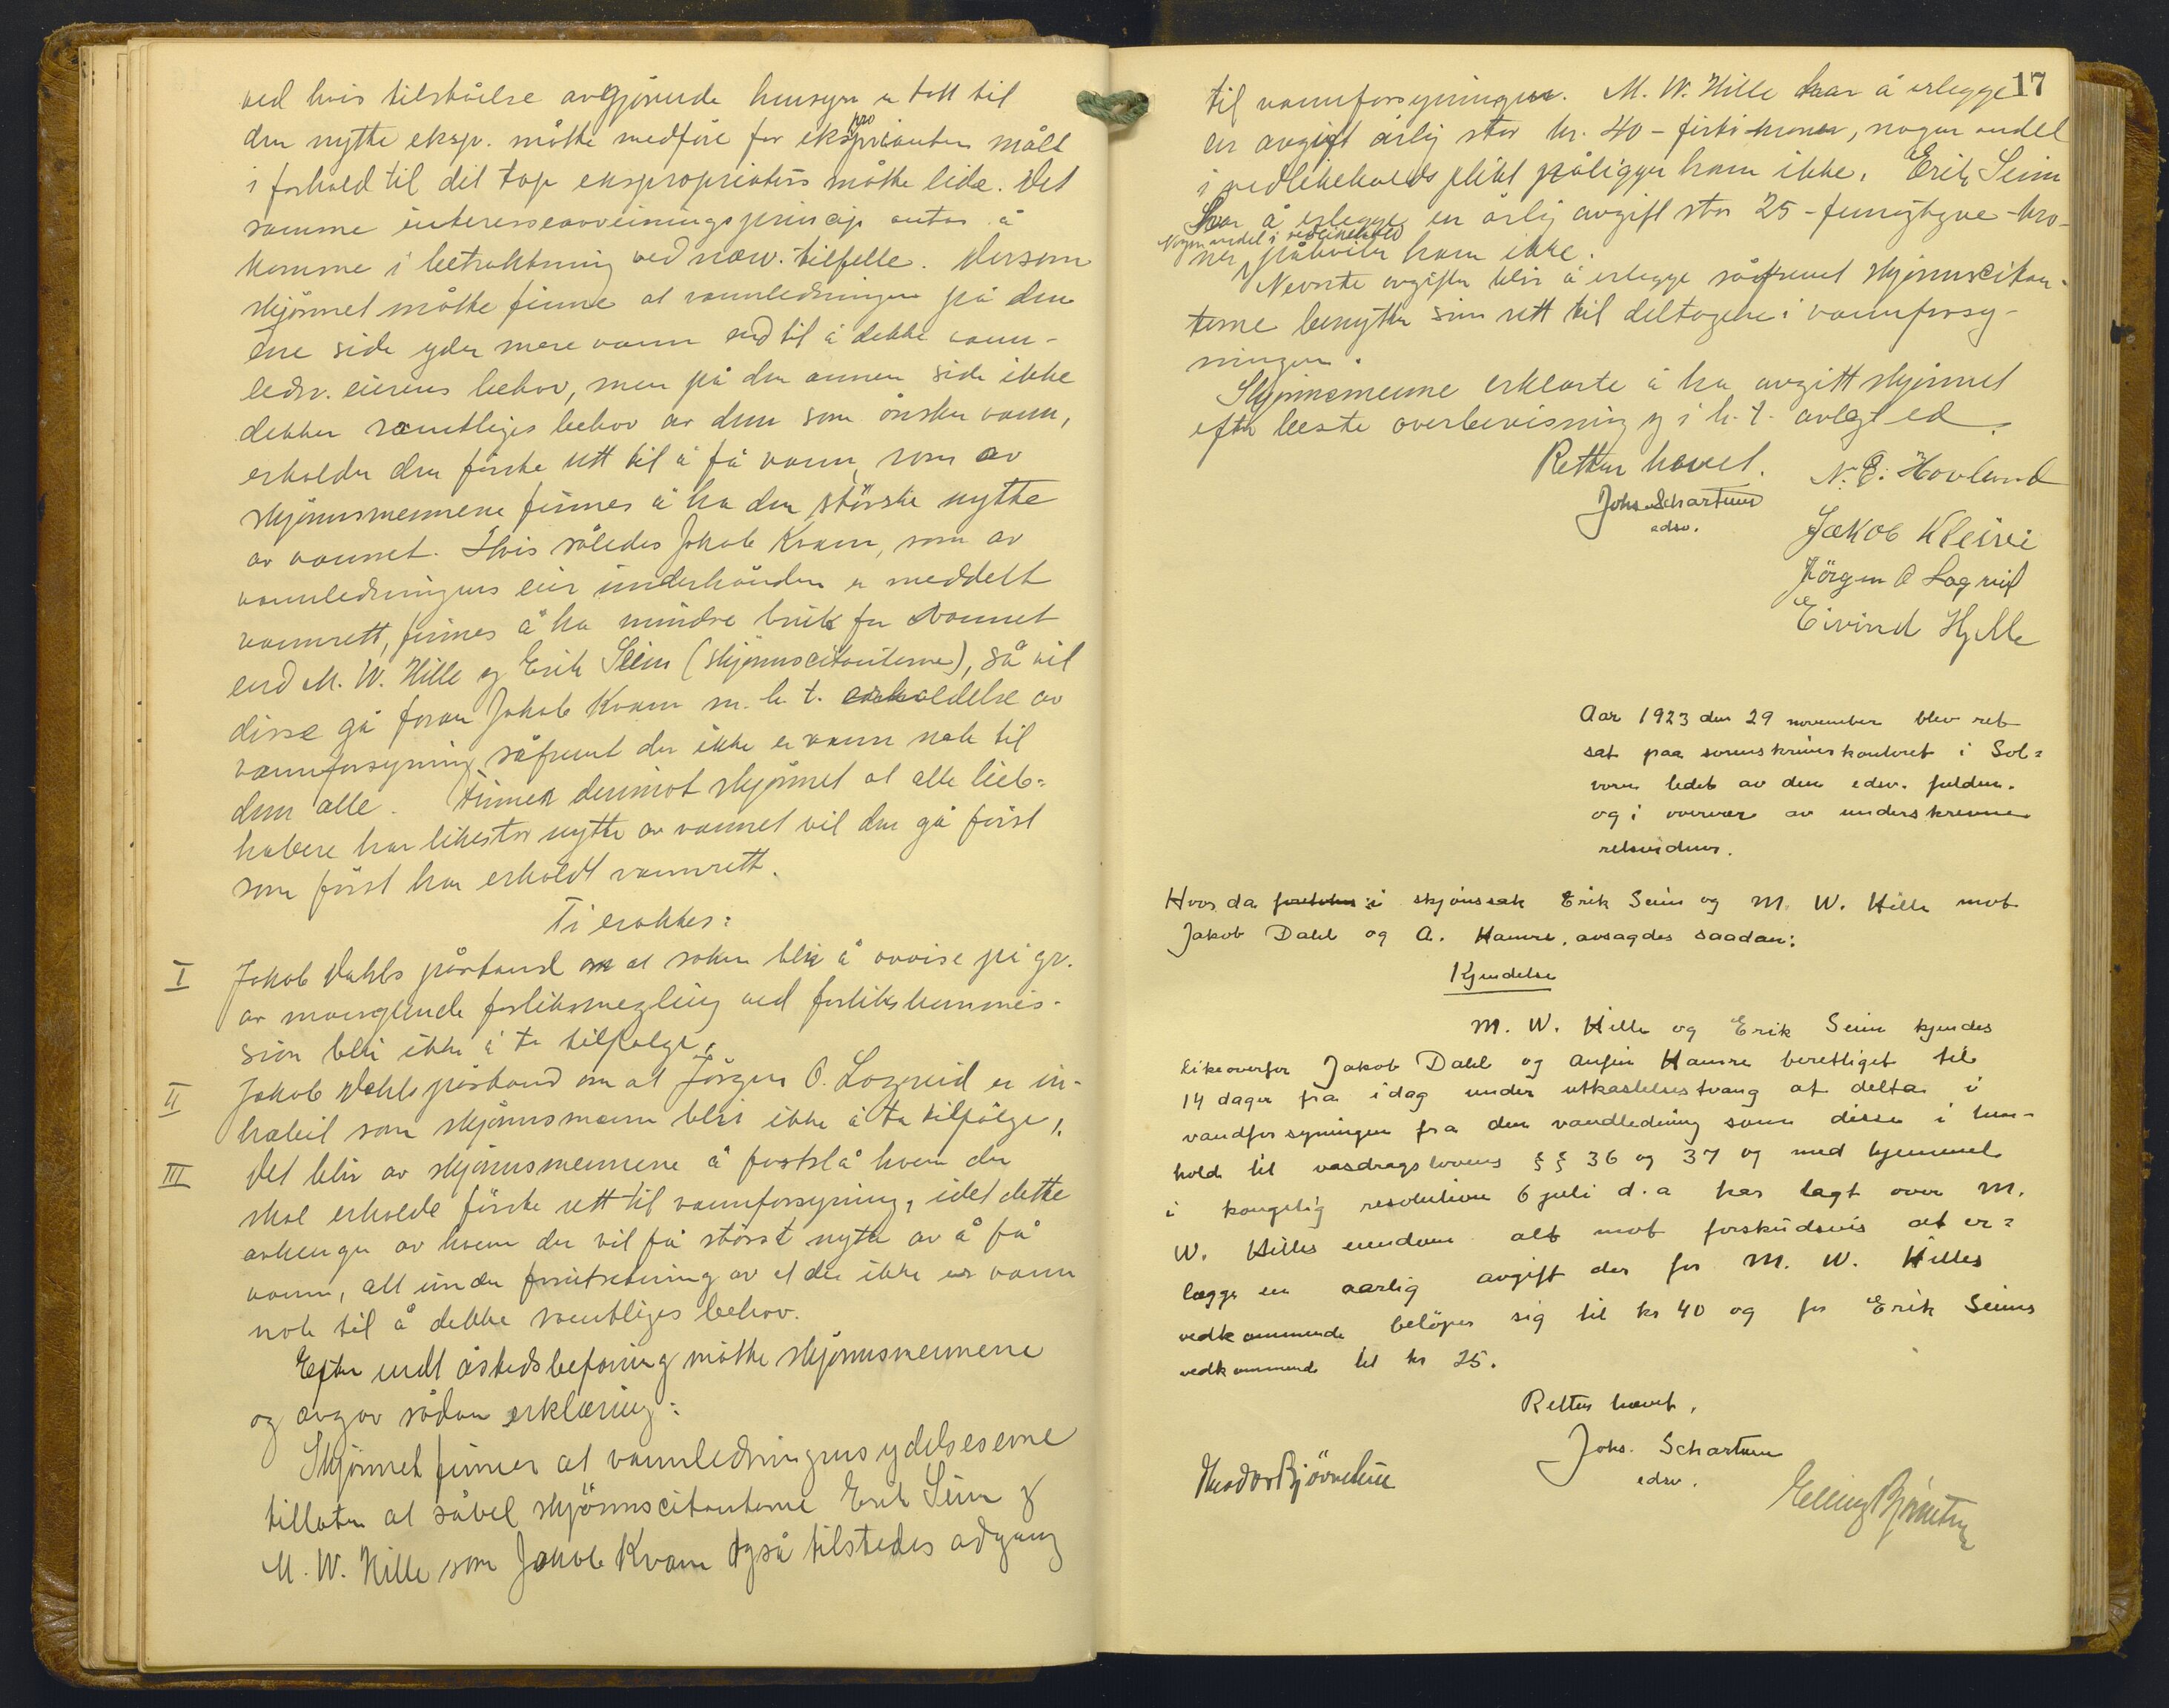 ved hvis tilståelse avgjörende hensyn er tatt til
den nytte ekspr. måtte medföre for ekspropriaten målt
i forhold til det tap ekspropriaten måtte lide. Det
samme interesseavveiningsprincip antas å
komme i betraktning ved nærv. tilfelle. Dersom
skjönnet måtte finne at vannledningen på den
ene side yder mere vann end til å dekke vann-
ledn. eierens behov, men på den annen side ikke
dekker samtliges behov av dem som önsker vann,
erholder den förste rett til å få vann, som av
skjönnsmennene finnes å ha den störste nytte
av vannet. Hvis således Jakob Kvam, som av
vannledningens eier underhånden er meddelt
vannrett, finnes å ha mindre bruk for vannet
end M. W. Hille og Erik Seim (skjönnscitanterne), så vil
disse gå foran Jakob Kvam m. h. t. erholdelse av
vannforsyning såfremt der ikke er vann nok til
dem alle. Finner derimot skjönnet at alle lieb=
habere har likestor nytte av vannet vil den gå först
som först har erholdt vannrett.
Ti eraktes:
I Jakob Dahls påstand om at saken blir å avvise på gr.
av manglende forliksmegling ved forlikskommis-
sion blir ikke å ta tilfölge.
II Jakob Dahls påstand om at Jörgen O. Lagreid er in-
habil som skjönnsmann blir ikke å ta tilfölge,
III Det blir av skjönnsmennene å fastslå hvem der
skal erholde förste rett til vannforsyning, idet dette
avhenger av hvem der vil få störst nytte av å få
vann, alt under forutsetning av at der ikke er vann
nok til å dekke samtliges behov.
Efter endt åstedsbefaring måtte skjönnsmennene
og avgav sådan erklæring:
Skjönnet finner at vannledningens ydelsesevne
tillater at såvel skjönnscitanterne Erik Seim og
M. W. Hille som Jakob Kvam også tilstedes adgang
17
til vannforsyningen. M. W. Hille har å erlegge
en avgift årlig stor kr. 40 - firti kroner, nogen andel
i vedlikeholdsplikt påligger ham ikke. Erik Seim
har å erlegge en årlig avgift stor 25 - femogtyve - kro-
Nogen andel i vedlikehold
ner påhviler ham ikke.
Nevnte avgifter blir å erlegge såfremt skjönnscitan-
terne benytter sin rett til deltagelse i vannforsy-
ningen.
Skjönnsmennene erklærte å ha avgitt skjönnet
efter beste overbevisning og i h. t. avlagt ed.
Retten hevet.
N. E. Hovland
Johs Schartum
edsv.
Jakob Kleivi
Jörgen O Lagreid
Eivind Hylle
Aar 1923 den 29 november blev ret
sat paa sorenskriverkontoret i Sol=
vorn ledet av den edsv. fuldm.
og i overvær av underskrevne
retsvidner.
Hvor da foretokes i skjönssak Erik Seim og M. W. Hille mot
Jakob Dahl og A. Hamre, avsagdes saadan:
Kjendelse
M. W. Hille og Erik Seim kjendes
likeoverfor Jakob Dahl og Anfin Hamre berettiget til
14 dager fra idag under utkastelsestvang at delta i
vandforsyningen fra den vandledning som disse i hen-
hold til vasdragslovens §§ 36 og 37 og med hjemmel
i kongelig resolution 6 juli d. a har lagt over M.
W. Hilles eiendom alt mot forskudsvis at er=
lægge en aarlig avgift der for M. W. Hilles
vedkommende belöper sig til kr 40 og for Erik Seims
vedkommende til kr 25.
Retten hævet.
Johs. Schartum
edsv.